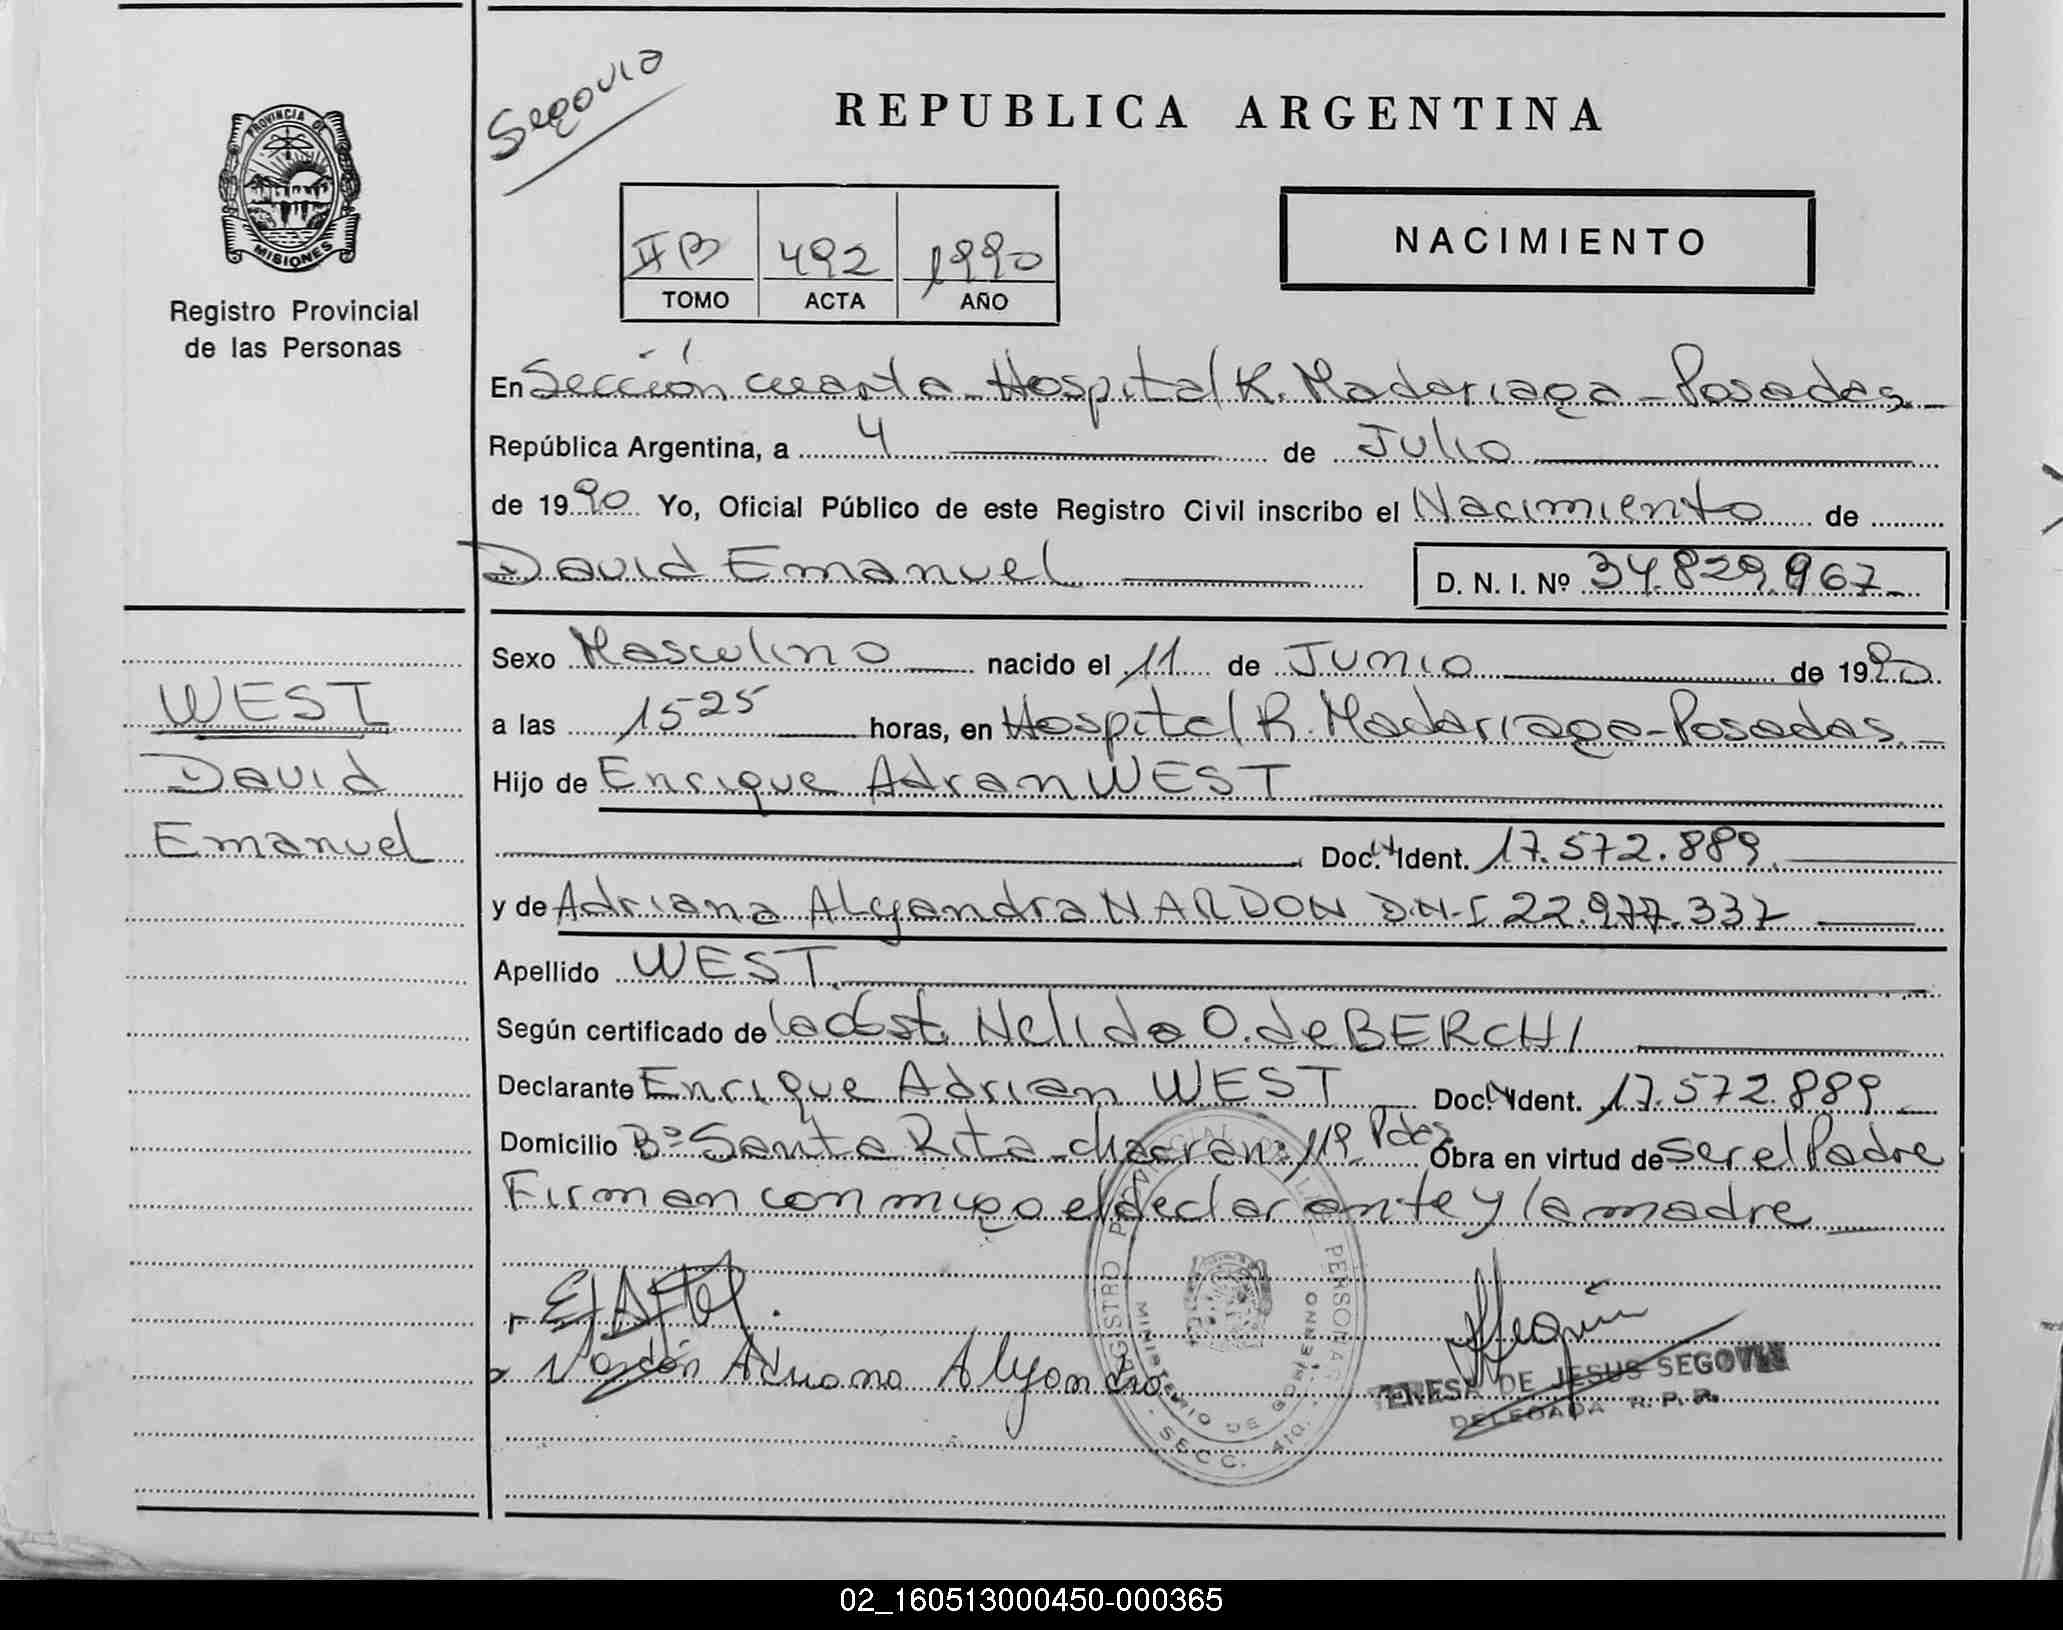 Segovia
REPUBLICA ARGENTINA
PROVINCIA DE
MISIONES
Registro Provincial
de las Personas
II B 492 1990
TOMO ACTA AÑO
NACIMIENTO
En Sección cuarta - Hospital R. Madariaga - Posadas -
República Argentina, a 4 de Julio
de 1990 Yo, Oficial Público de este Registro Civil inscribo el Nacimiento de
David Emanuel D. N. I. Nº 34.829.967 -
Sexo Masculino nacido el 11 de Junio de 1990
a las 15 25 horas, en Hospital R. Madariaga - Posadas. -
Hijo de Enrique Adran WEST
Doc. Ident. 17.572.889.
y de Adriana Alejandra NARDON D.N.I 22.977.337
Apellido WEST
Según certificado de la Obst. Nelida O. de BERCHI
Declarante Enrique Adrian WEST Doc. Ident. 17.572.889 -
Domicilio Bº Santa Rita - chacra nº 119 Pdas Obra en virtud de ser el Padre
Firman conmigo el declarante y la madre
WEST
David
Emanuel
Nardón Adriana Alejandra
REGISTRO PROVINCIAL DE LAS PERSONAS
MINISTERIO DE GOBIERNO
SECC. 4ta.
TERESA DE JESUS SEGOVIA
DELEGADA R. P. P.
02_160513000450-000365